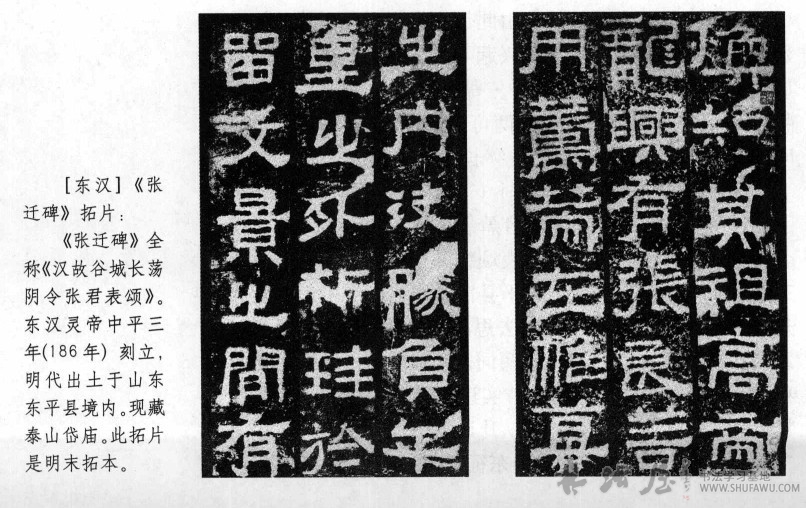 [东汉]《张
迁碑》拓片：
《张迁碑》全
称《汉故谷城长荡
阴令张君表颂》。
东汉灵帝中平三
年(186年) 刻立，
明代出土于山东
东平县境内。现藏
泰山岱庙。此拓片
是明末拓本。
煥知其祖高帝
龍興有張良善
用籌策在帷幕
之内决勝負千
里之外析珪於
留文景之間有
书法屋
书法学习基地
WWW.SHUFAWU.COM